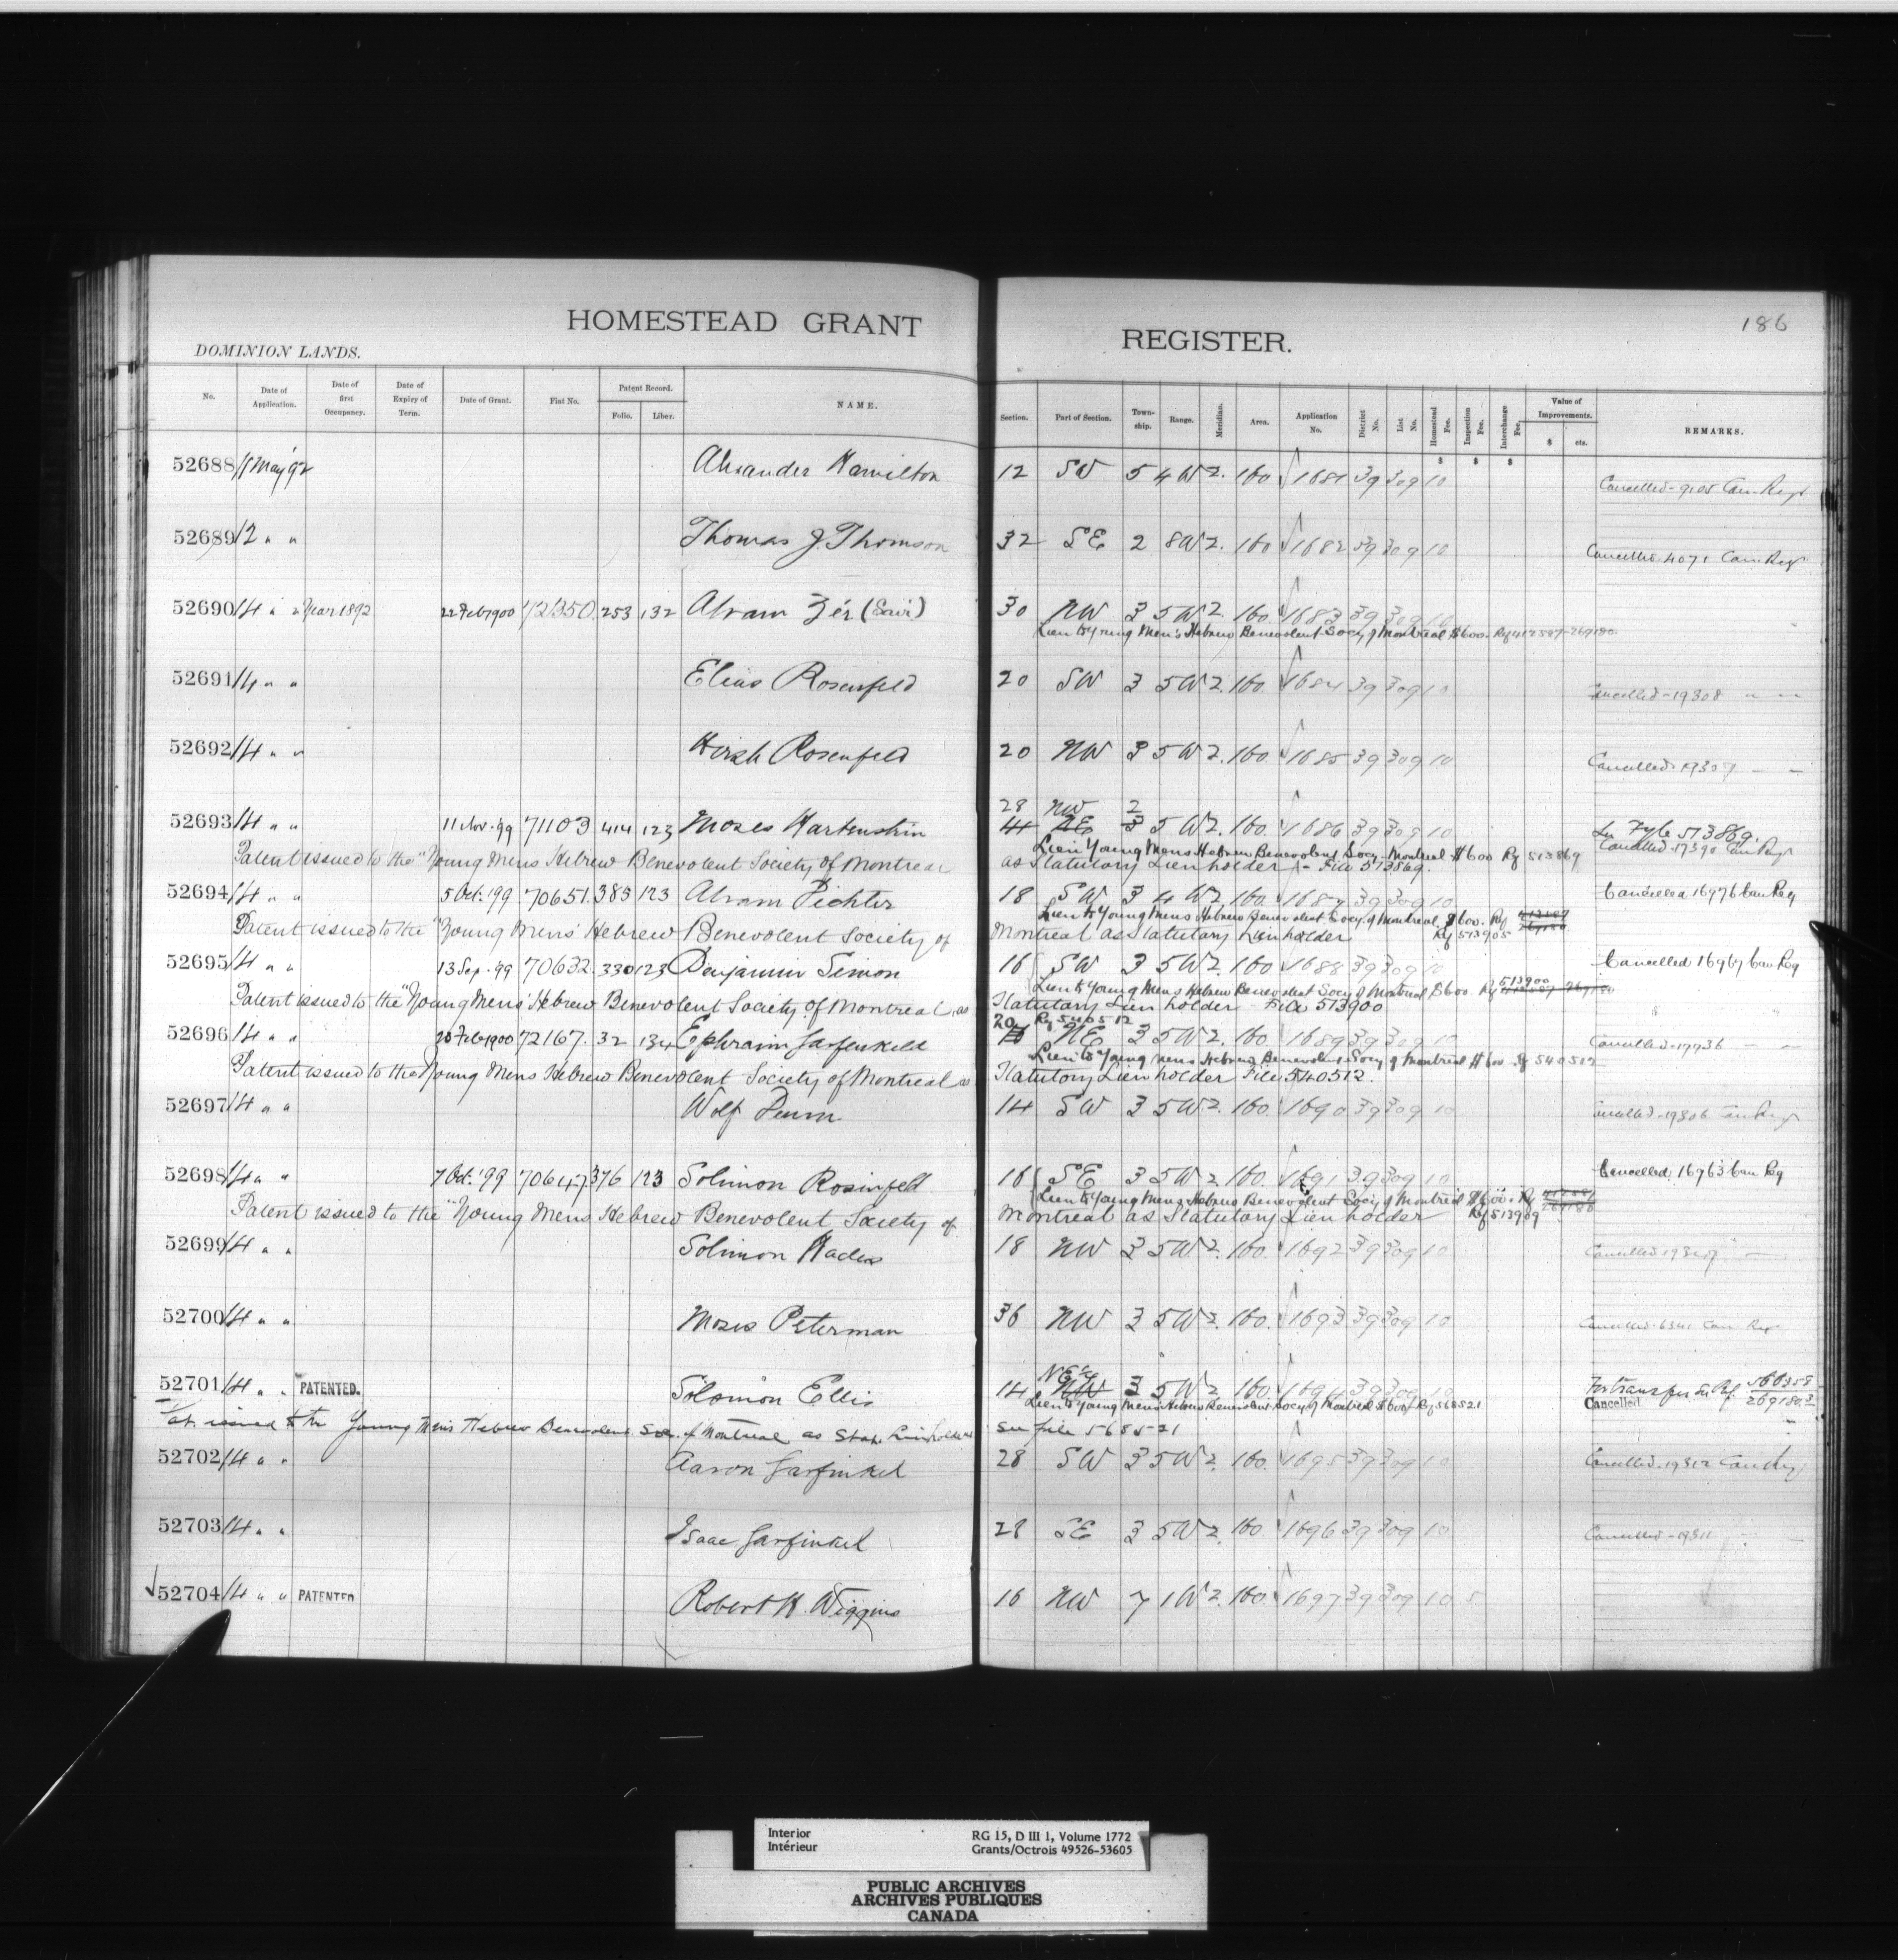 186
HOMESTEAD GRANT REGISTER.
DOMINION LANDS.
No. Date of Application. Date of first Occupancy. Date of Expiry of Term. Date of Grant. Fiat No. Patent Record. Folio. Liber. NAME. Section. Part of Section. Town-ship. Range. Meridian. Area. Application No. District No. List No. Homestead Fee. Inspection Fee. Interchange Fee. Value of Improvements. $ cts. REMARKS.
$ $ $
52688 11 May '92 Alexander Hamilton 12 SW 5 4 W 2. 160 1681 39 309 10
Cancelled - 9105 Can Regr
52689 12 " " Thomas J. Thomson 32 SE 2 8 W 2. 160 1682 39 309 10
Cancelled 4071 Can Regr
52690 14 " " Mar 1892 22 Feb 1900 72350 253 132 Abram 30 NW 3 5 W 2. 160. 1683 39 309 10
Lien to Young Men's Hebrew Benevolent Socy of Montreal $600. Rf 412587-269180.
52691 14 " " Elias Rosenfeld 20 SW 3 5 W 2. 160. 1684 39 309 10
Cancelled - 19308 " "
52692 14 " " Hirsh Rosenfeld 20 NW 3 5 W 2. 160. 1685 39 309 10
Cancelled 19309 " "
28 NW 2
52693 14 " " 11 Nov. '99 71103 414 123 Moses Hartenstein 4 NE 3 5 W 2. 160. 1686 39 309 10 See Fyle 513869.
Lien Young Mens Hebrew Benevolent Socy. Montreal $600 Rf 513869 Cancelled 17390 Can Regr
Patent issued to the "Young Mens Hebrew Benevolent Society of Montreal as Statutory Lienholder - File 513869.
52694 14 " " 5 Oct. '99 70651. 383 123 Abram Pichter 18 SW 3 4 W 2. 160. 1687 39 309 10 Cancelled 16976 Can Reg
Lien to Young Mens Hebrew Benevolent Socy of Montreal $600. Rf
Patent issued to the "Young Mens' Hebrew Benevolent Society of Montreal as Statutory Lienholder Rf 513905
52695 14 " " 13 Sep. '99 70632. 330 123 Benjamin Simon 16 SW 3 5 W 2. 160 1688 39 309 10 Cancelled 16967 Can Reg
Lien to Young Mens Hebrew Benevolent Socy of Montreal $600 Rf 513900
Patent issued to the "Young Mens' Hebrew Benevolent Society of Montreal, as Statutory Lien holder - File 513900
20 Rf 540512
52696 14 " " 20 Feb 1900 72167. 32 134 Ephraim Garfenkeld NE 3 5 W 2. 160. 1689 39 309 10 Cancelled 17936 " "
Lien to Young Mens Hebrew Benevolent Socy of Montreal $600 Rf 540512
Patent issued to the Young Mens Hebrew Benevolent Society of Montreal as Statutory Lien holder File 540512.
52697 14 " " Wolf 14 SW 3 5 W 2. 160. 1690 39 309 10 Cancelled 19306 Can Regr
52698 14 " " 7 Oct. '99 70647 376 123 Solimon Rosinfeld 16 SE 3 5 W 2. 160. 1691 39 309 10 Cancelled 16963 Can Reg
Lien to Young Mens Hebrew Benevolent Socy of Montreal $600. Rf
Patent issued to the "Young Mens Hebrew Benevolent Society of Montreal as Statutory Lien holder Rf 513909
52699 14 " " Solimon 18 NW 3 5 W 2. 160. 1692 39 309 10 Cancelled
52700 14 " " Moses Peterman 36 NW 3 5 W 2. 160. 1693 39 309 10 Cancelled 6341 Can Reg
NE 1/4
52701 14 " " PATENTED. Solomon Ellis 14 NW 3 5 W 2. 160. 1694 39 309 10 For transfer see Rf. 566358 269180.3
Lien to Young Mens Hebrew Benevolent Socy of Montreal $600 Rf 568521 Cancelled
Pat. issued to the Young Men's Hebrew Benevolent Soc. of Montreal as Stat. Lienholders See file 568521
52702 14 " " Aaron Garfinkel 28 SW 3 5 W 2. 160. 1695 39 309 10 Cancelled 19312 Can Reg
52703 14 " " Isaac Garfinkel 28 SE 3 5 W 2. 160. 1696 39 309 10 Cancelled - 19311 " "
52704 14 " " PATENTED Robert H. Wiggins 16 NW 7 1 W 2. 160. 1697 39 309 10 5
Interior RG 15, D III 1, Volume 1772
Intérieur Grants/Octrois 49526-53605
PUBLIC ARCHIVES
ARCHIVES PUBLIQUES
CANADA